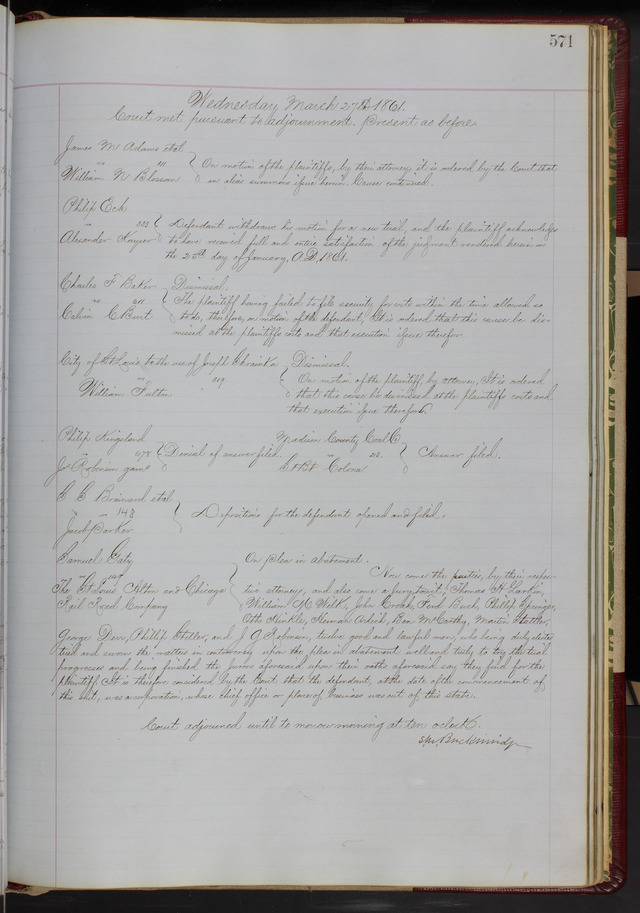 571
Wednesday March 27th 1861.
Court met pursuant to adjournment. Present as before.
James M Adams et al
vs
William N Blossom
On motion of the plaintiffs, by their attorney, it is ordered by the Court that
an alias summons issue herein. Cause continued.
Philip Eck
vs
Alexander Kayser
Defendant withdraws his motion for a new trial, and the plaintiff acknowledges
to have received full and entire satisfaction of the judgment rendered herein on
the day of January, A.D. 1861.
Charles F Baker
vs
Calvin C Burt
Dismissal.
The plaintiff having failed to file security for costs within the time allowed so
to do, therefore, on motion of the defendant, It is ordered that this cause be dis-
missed at the plaintiffs costs and that execution issue therefor.
City of St Louis to the use of Joseph
vs
William Fulton
Dismissal.
On motion of the plaintiff, by attorney, It is ordered
that this cause be dismissed at the plaintiffs costs and
that execution issue therefor.
Philip Kingsland
vs
Denial of answer filed.
Madison County Coal Co
vs
Colona
Answer filed.
Brainard et al
vs 148
Jacob Barker
Depositions for the defendant opened and filed.
Samuel Gaty
vs
The St Louis Alton and Chicago
Rail Road Company
On plea in abatement.
Now come the parties, by their respec-
tive attorneys, and also come a jury, to wit; Thomas H Larkin,
William John Ferd Phillip Springer,
Otto Hinkle, Herman Ben McCarthy, Martin
George Phillip and J G Robinson, twelve good and lawful men, who being duly elected
tried and sworn the matters in controversy upon the plea in abatement well and truly to try the trial
progresses and being finished the jurors aforesaid upon their oaths aforesaid say they find for the
plaintiff. It is therefore considered by the Court that the defendant, at the date of the commencement of
this suit, was a corporation, whose chief office or place of business was out of this state.
Court adjourned until tomorrow morning at ten oclock.